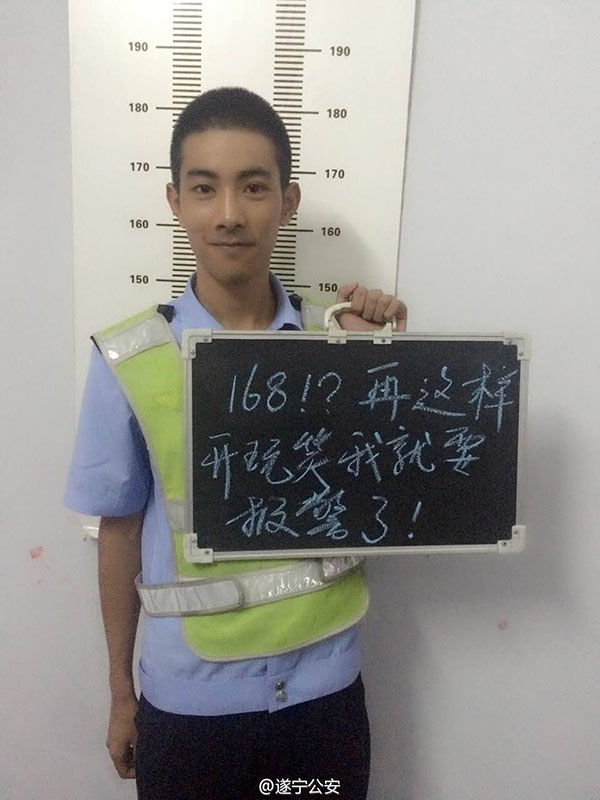 190 190
180 180
170 170
160 160
150 150
168!?再这样
开玩笑我就要
报警了!
@遂宁公安